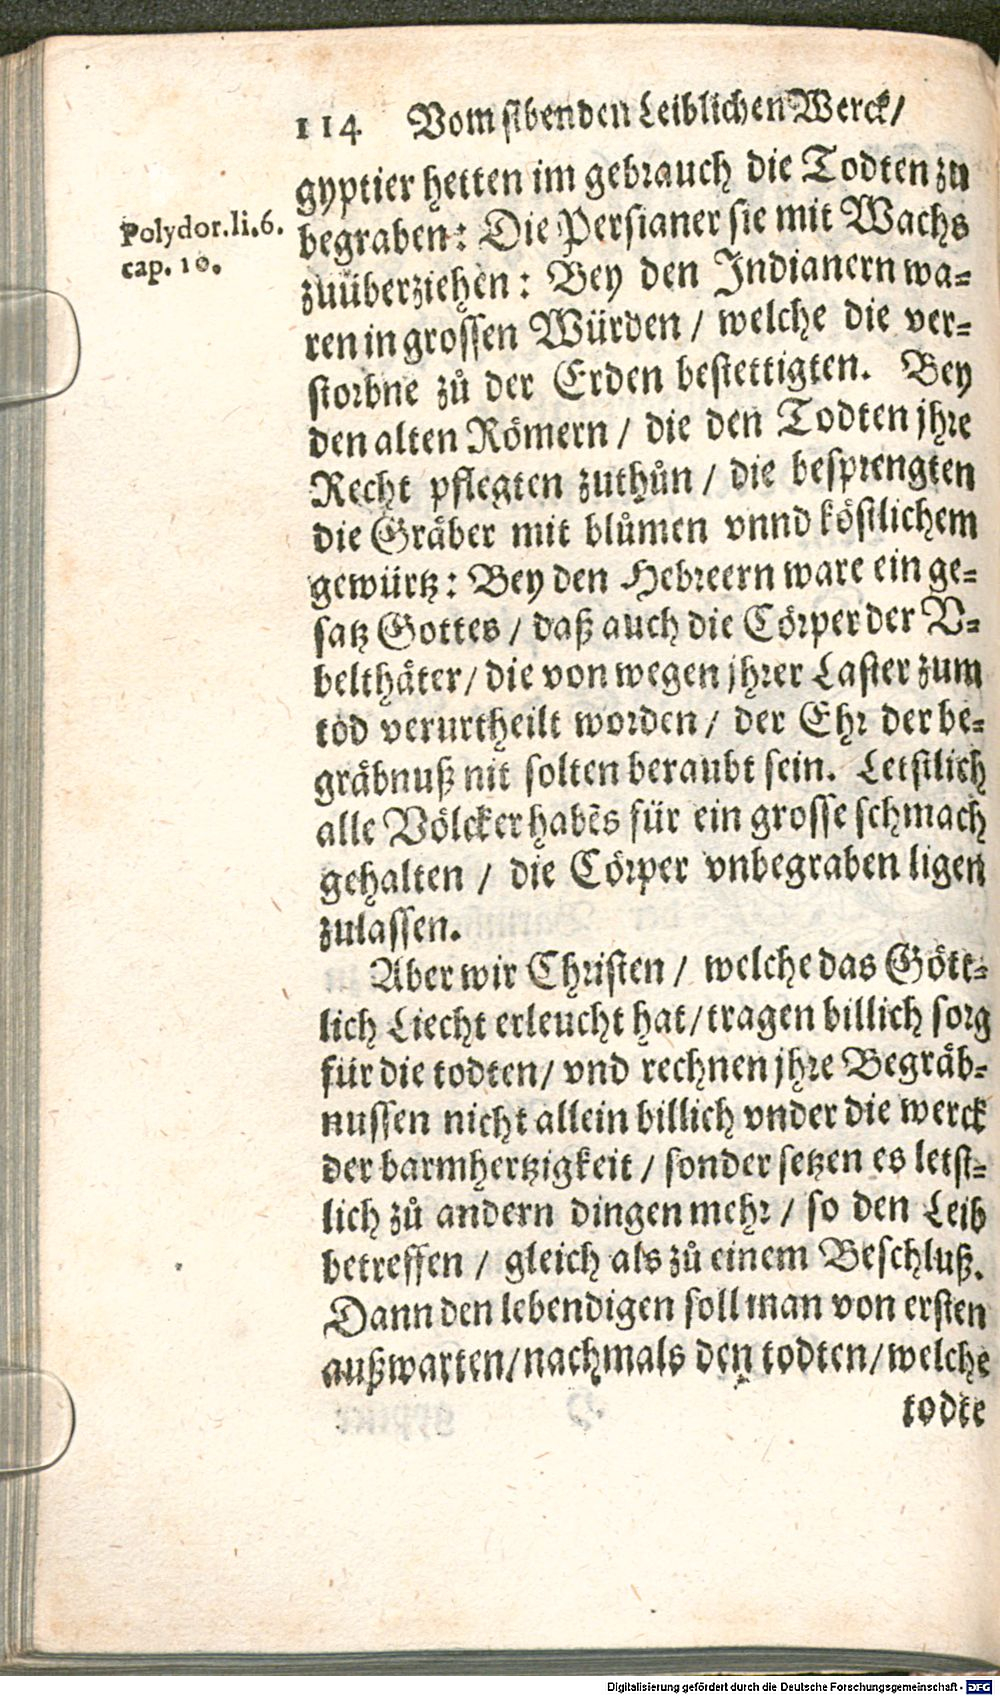 114 Vom sibenden Leiblichen Werck/
gyptier hetten im gebrauch die Todten zu
Polydor.li.6.
cap. 10.
begraben: Die Persianer sie mit Wachs
zuüberziehen: Bey den Indianern wa-
ren in grossen Würden / welche die ver-
storbne zů der Erden bestettigten. Bey
den alten Römern / die den Todten jhre
Recht pflegten zuthůn / die besprengten
die Gräber mit blůmen vnnd köstlichem
gewürtz: Bey den Hebreern ware ein ge-
satz Gottes / daß auch die Cörper der V-
belthäter/ die von wegen jhrer Laster zum
tod verurtheilt worden / der Ehr der be-
gräbnuß nit solten beraubt sein. Letstlich
alle Völcker habẽs für ein grosse schmach
gehalten / die Cörper vnbegraben ligen
zulassen.
Aber wir Christen / welche das Gött-
lich Liecht erleucht hat/ tragen billich sorg
für die todten/ vnd rechnen jhre Begräb-
nussen nicht allein billich vnder die werck
der barmhertzigkeit / sonder setzen es letst-
lich zů andern dingen mehr / so den Leib
betreffen / gleich als zů einem Beschluß.
Dann den lebendigen soll man von ersten
außwarten/ nachmals den todten/ welche
todte
Digitalisierung gefördert durch die Deutsche Forschungsgemeinschaft - DFG